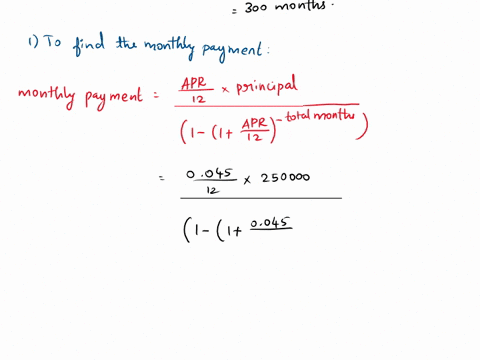 = 300 months.
1) To find the monthly payment:
monthly payment = APR/12 × principal / (1-(1+ APR/12)^-total months)
= 0.045/12 × 250000 / (1-(1+ 0.045